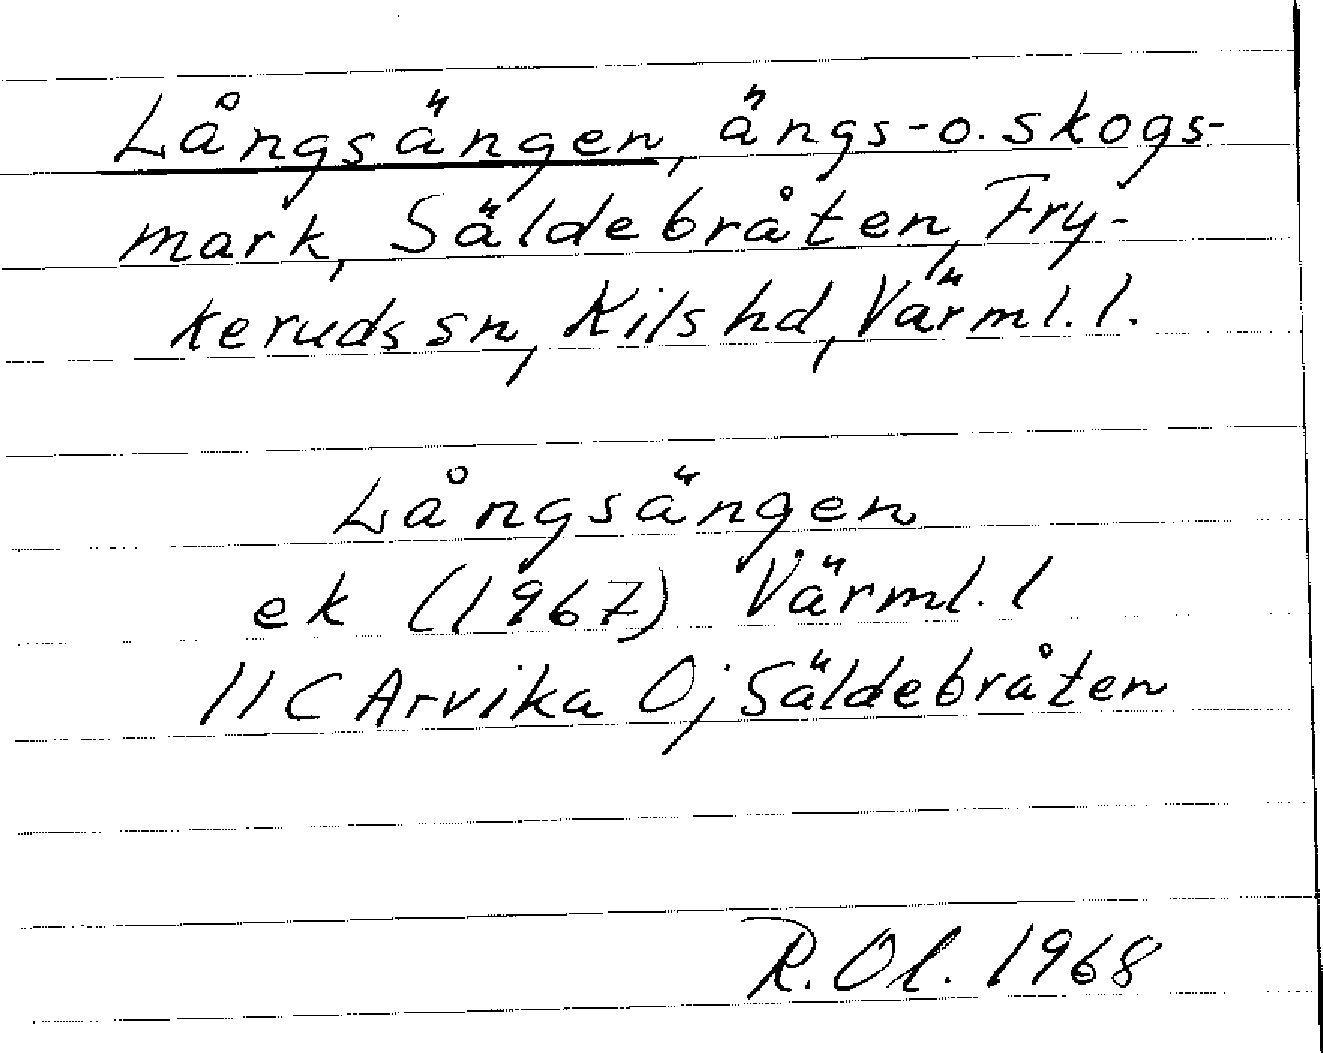 Långsängen, ängs- o. skogs-
mark, Säldebråten, Fry-
kerudssn, Kils hd, Värml. l.
Långsängen
ek (1967) Värml. l
11C Arvika O; Säldebråten
R. Ol. 1968